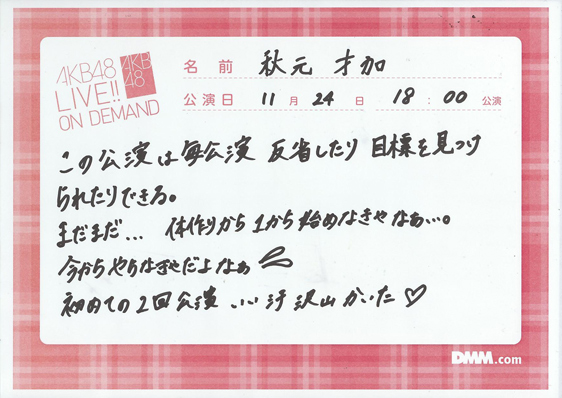 AKB48
LIVE!!
ON DEMAND
AKB
48
名前 秋元 才加
公演日 11月24日 18:00公演
この公演は毎公演 反省したり 目標を見つけ
られたりできる。
まだまだ… 体作りから1から始めなきゃなぁ…。
今からやらなきゃだよなぁ
初めての2回公演 いい汗沢山かいた♡
DMM.com